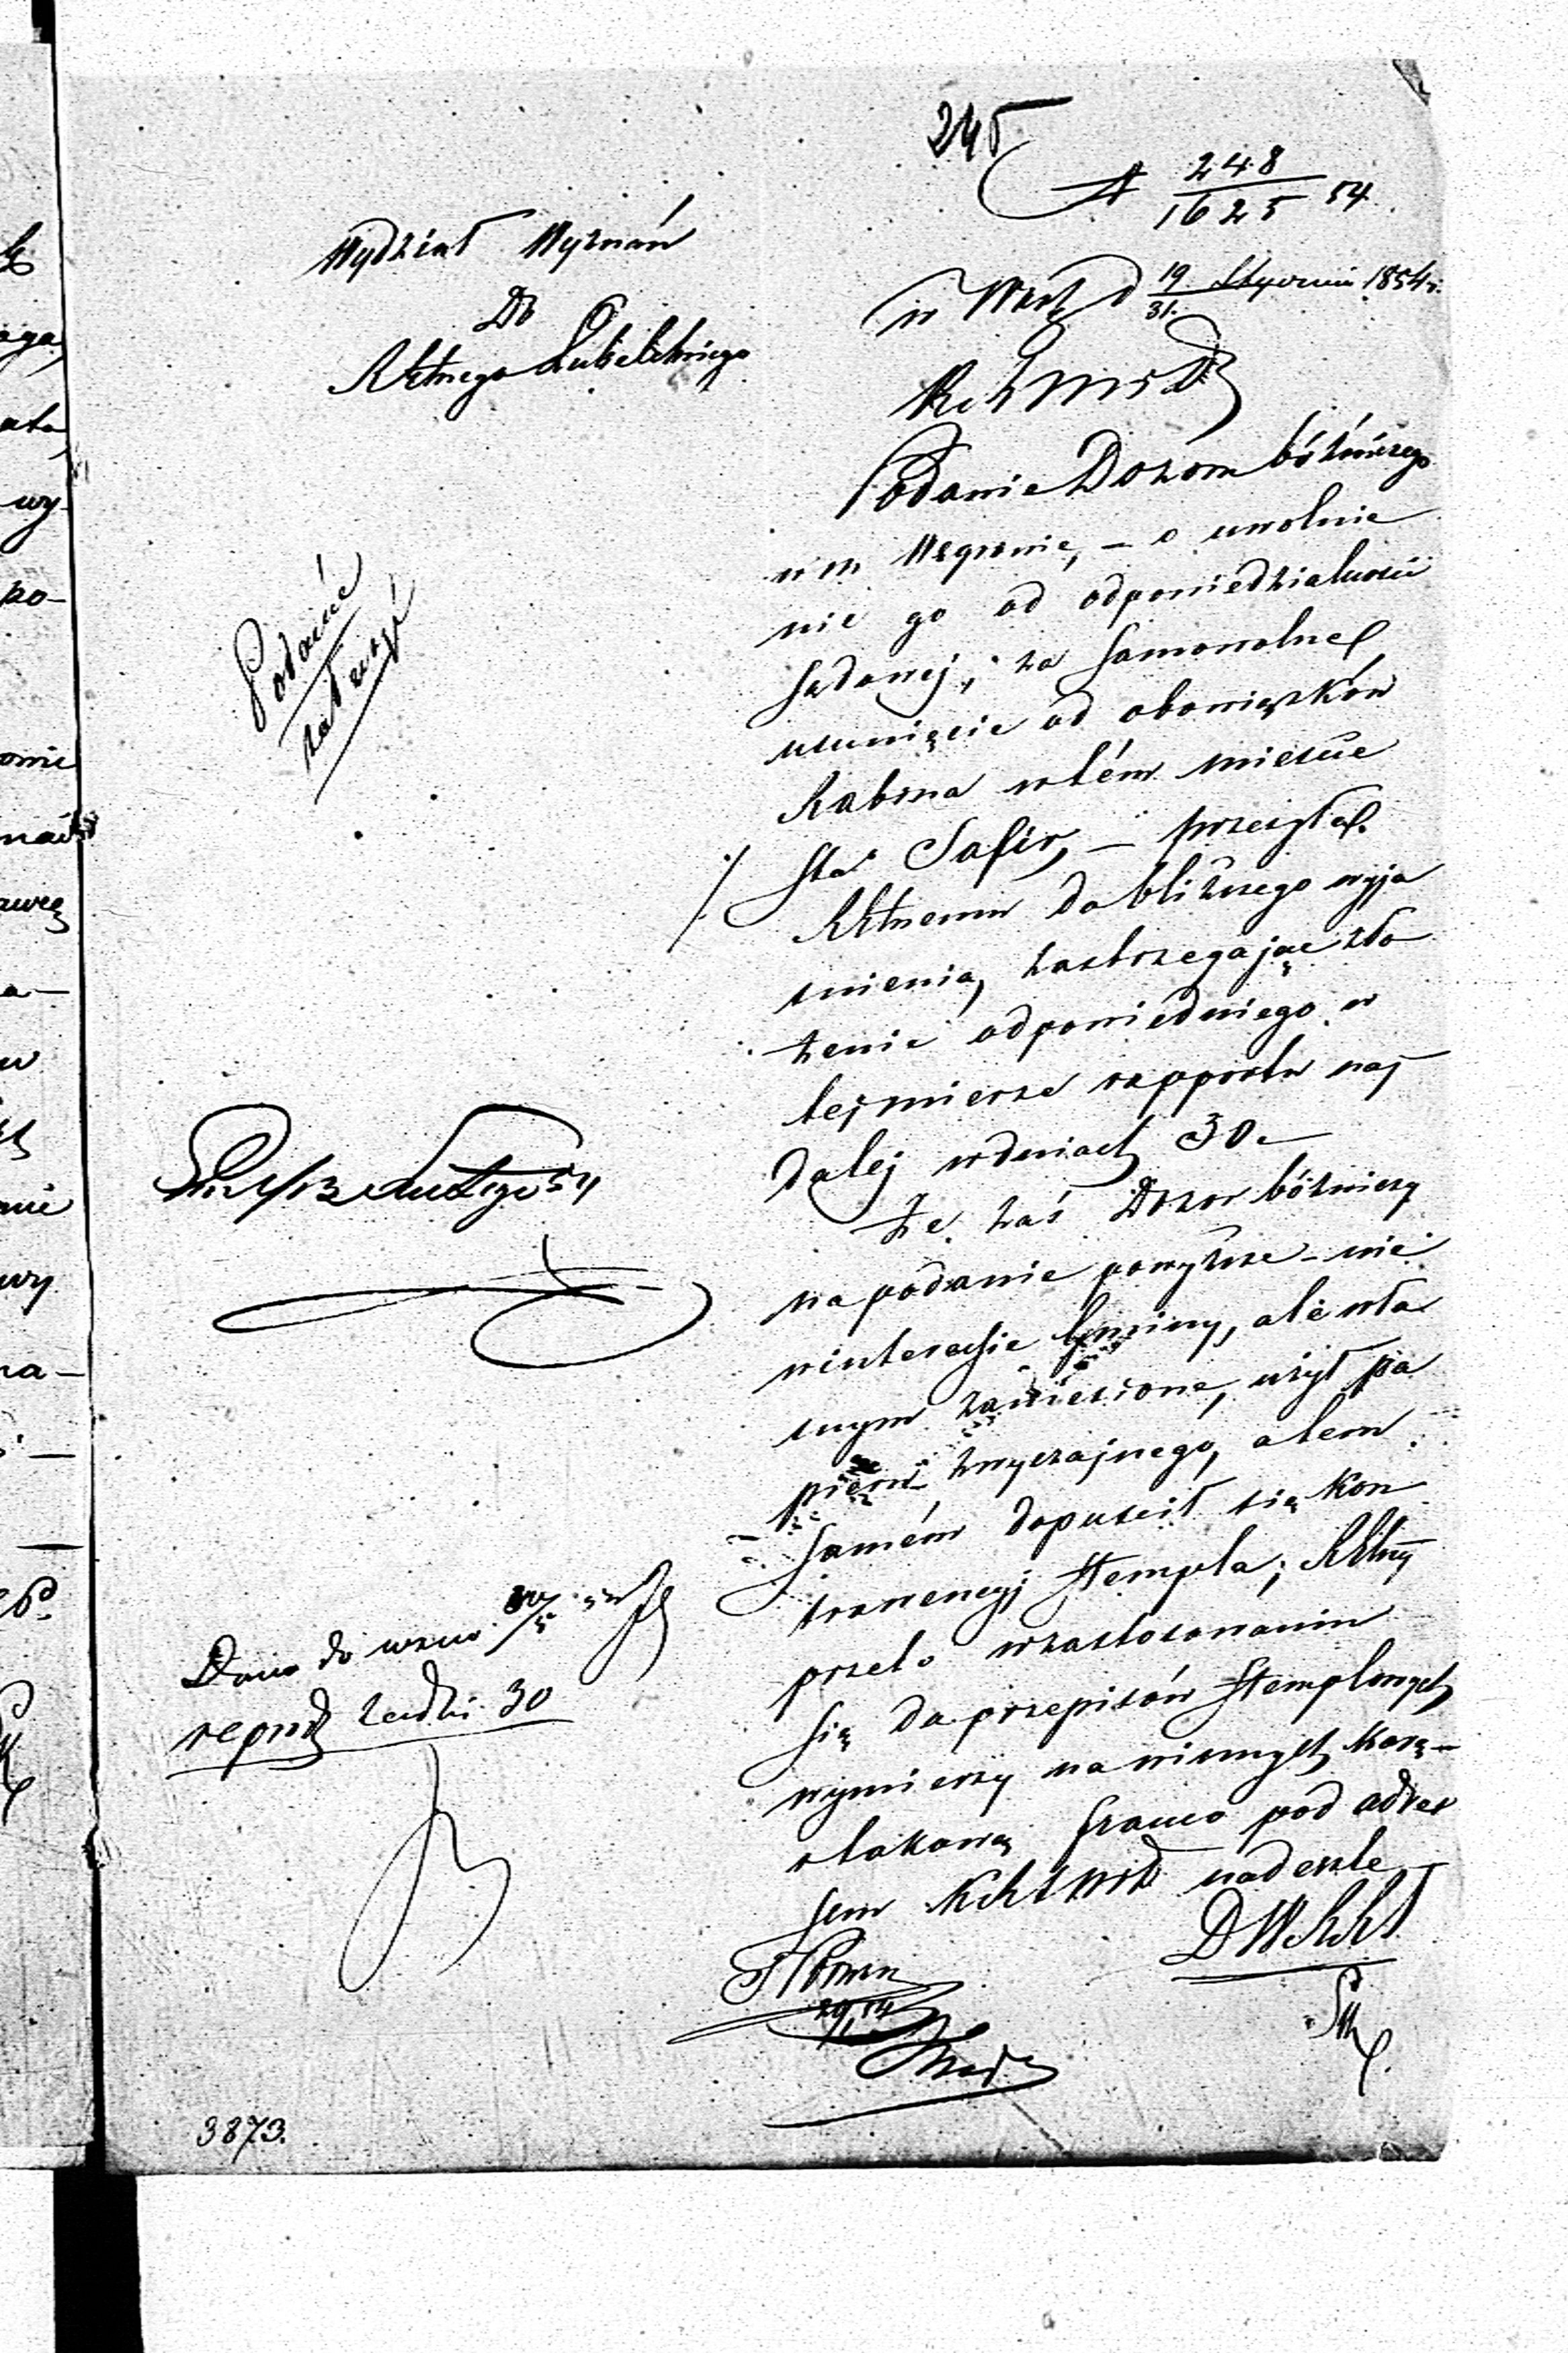 245
№ 248/1625 54
Wydział Wyznań
Do
Rktnego Lubelskiego
w Wars d 19/31 Stycznia 1854 r.
Podanie Dozoru bóżniczego
w m Węgrowie, – o uwolnie
nie go od odpowiedzialności
sądowej, za samowolne
usunięcie od obowiązków
Rabina w tém mieście
Sta Safir, – przesyła
Rktnemu do bliższego wyja
śnienia, zastrzegając zło
żenie odpowiedniego w
tej mierze rapportu naj
dalej w dniach 30 –
Że zaś Dozór bóżniczy
na podanie powyższe – nie
w interesie Gminy, ale wła
snym zaniesione, użył pa
pieru zwyczajnego, a tem
samém dopuścił się kon
trawencyj stempla; Rktny
przeto w zastosowaniu
się do przepisów stemplowych
wymierzy na winnych karę –
i takową franco pod adres
sem nadeszle
DWRKt
Podanie
załączyć
Lutego 54
Dano do
30
3873.